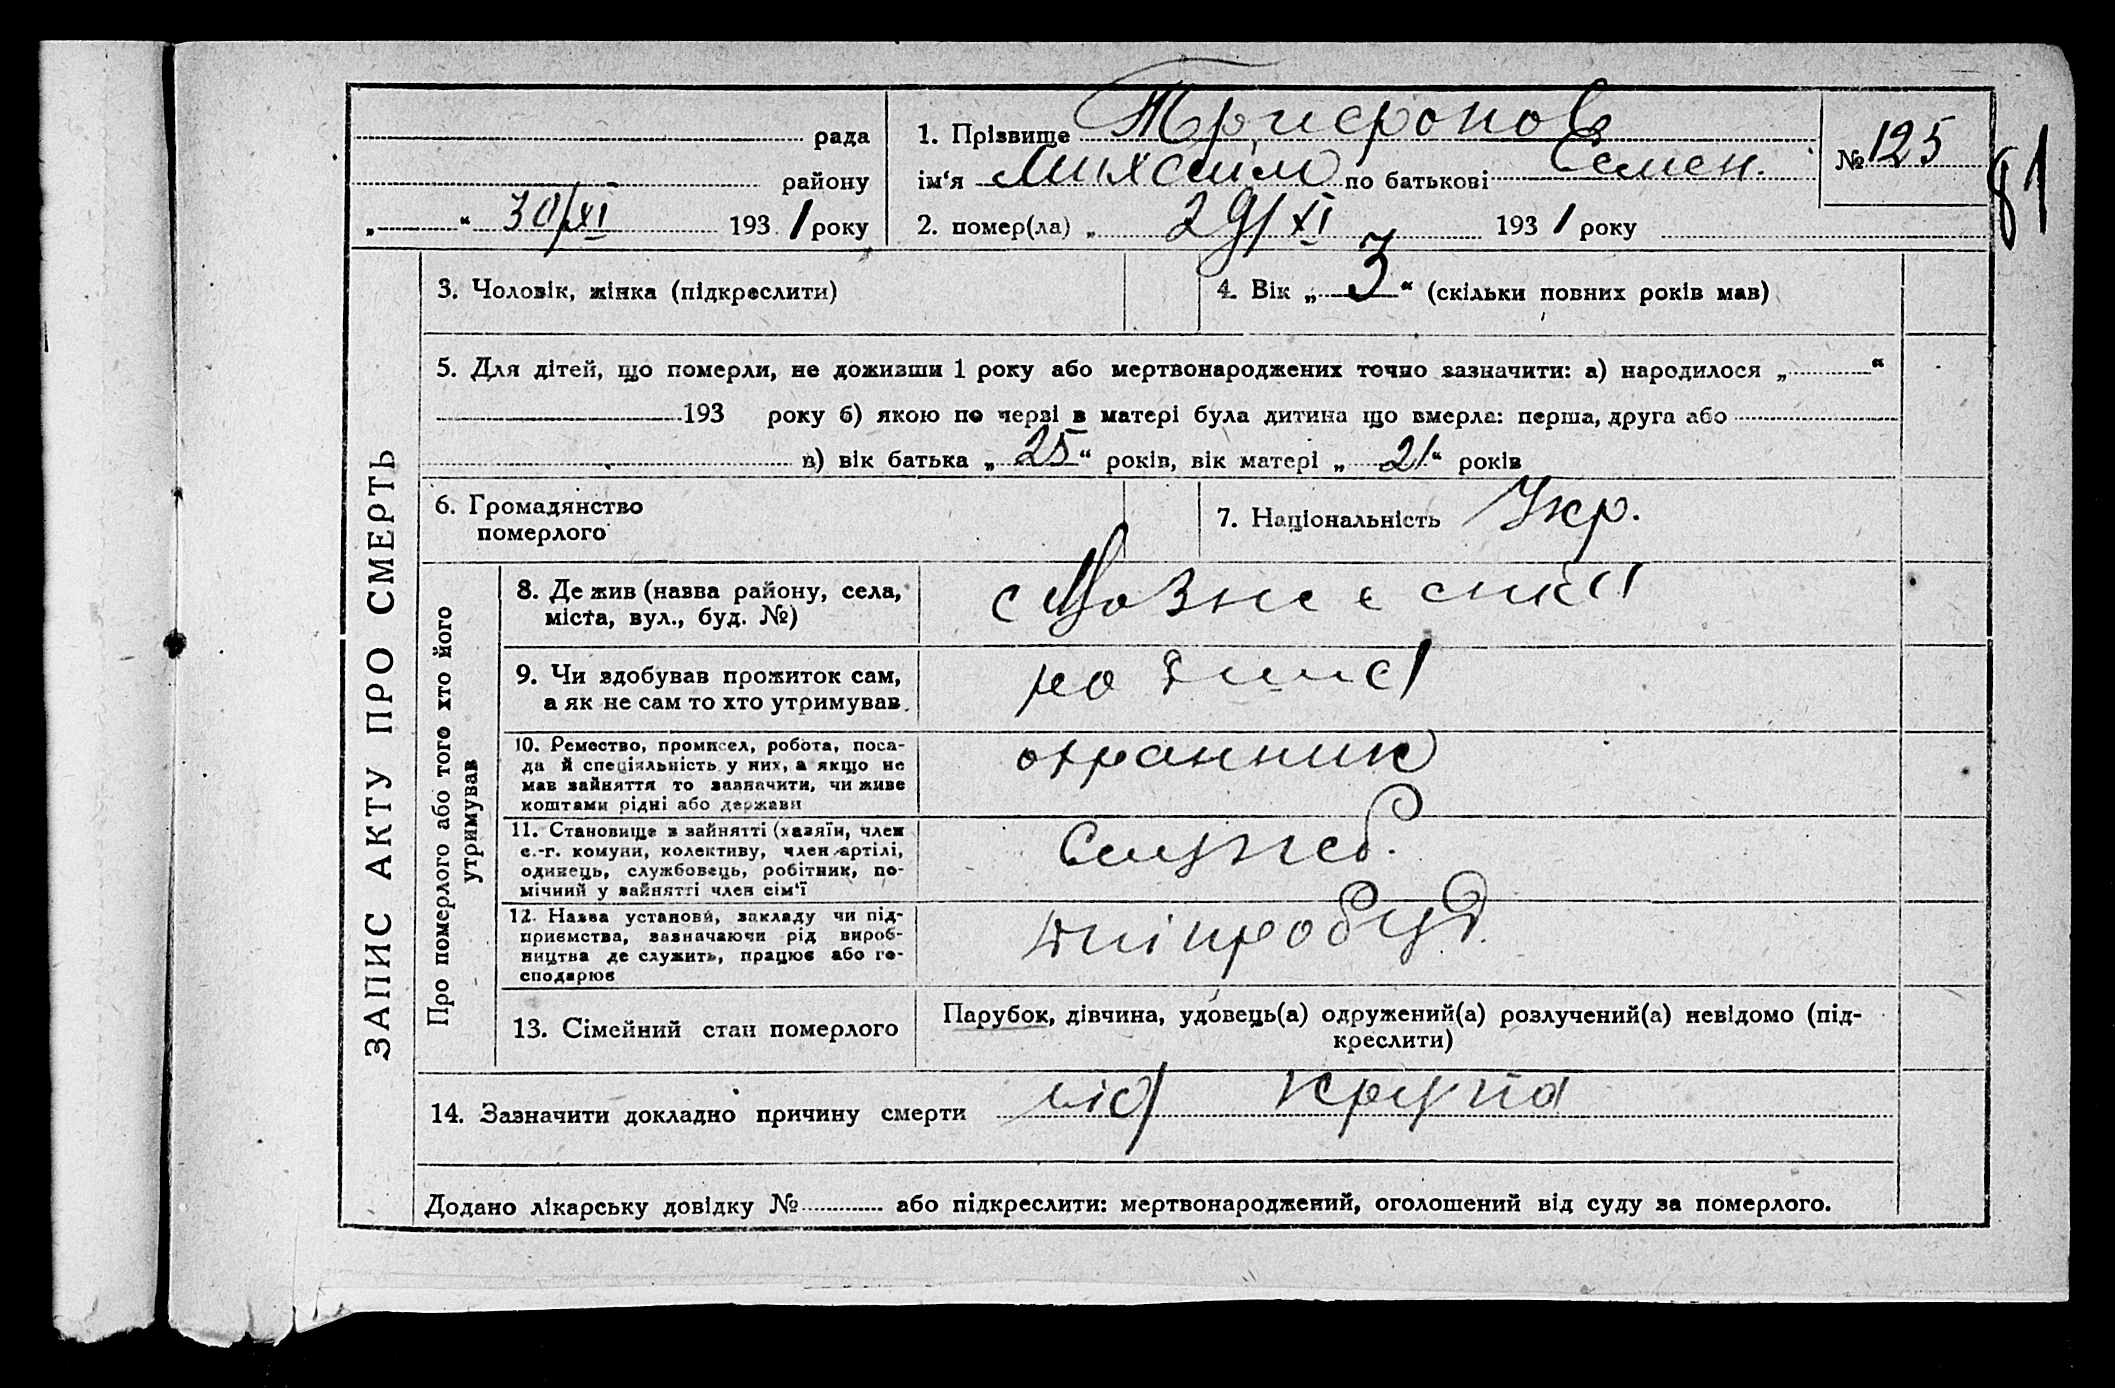 рада
району
„ “ 30/XI 193 1 року
1. Прізвище Трифонов
ім‘я Михайло по батькові Семен.
2. помер(ла) „ 29/XI 193 1 року
№ 125
81
ЗАПИС АКТУ ПРО СМЕРТЬ
3. Чоловік, жінка (підкреслити)
4. Вік „ 3 “ (скільки повних років мав)
5. Для дітей, що померли, не доживши 1 року або мертвонароджених точно зазначити: а) народилося „ “
193 року б) якою по черзі в матері була дитина що вмерла: перша, друга або
в) вік батька „ 25 “ років, вік матері „ 21 “ років
6. Громадянство
померлого
7. Національність Укр.
Про померлого або того хто його
утримував
8. Де жив (назва району, села,
міста, вул., буд. №)
с Вознесенка
9. Чи здобував прожиток сам,
а як не сам то хто утримував.
родина
10. Ремество, промисел, робота, поса-
да й спеціяльність у них, а якщо не
мав зайняття то зазначити, чи живе
коштами рідні або держави
охранник
11. Становище в зайнятті (хазяїн, член
с.-г. комуни, колективу, член артілі,
одинець, службовець, робітник, по-
мічний у зайнятті член сім‘ї
Служб.
12. Назва установи, закладу чи під-
приємства, зазначаючи рід вироб-
ництва де служить, працює або го-
сподарює
Дніпробуд.
13. Сімейний стан померлого
Парубок, дівчина, удовець(а) одружений(а) розлучений(а) невідомо (під-
креслити)
14. Зазначити докладно причину смерти від крупа
Додано лікарську довідку № або підкреслити: мертвонароджений, оголошений від суду за померлого.